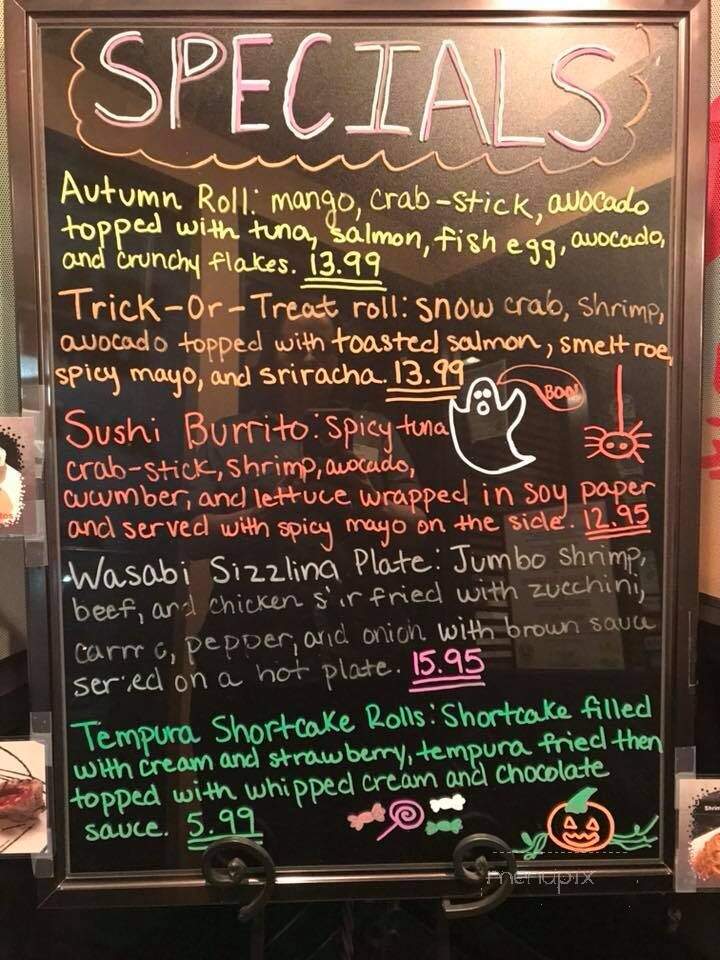 SPECIALS
Autumn Roll: mango, crab-stick, avocado
topped with tuna, salmon, fish egg, avocado,
and crunchy flakes. 13.99
Trick-Or-Treat roll: snow crab, shrimp,
avocado topped with toasted salmon, smelt roe,
spicy mayo, and sriracha. 13.99
BOO!
Sushi Burrito: Spicy tuna
crab-stick, shrimp, avocado,
cucumber, and lettuce wrapped in soy paper
and served with spicy mayo on the side. 12.95
Wasabi Sizzling Plate: Jumbo shrimp,
beef, and chicken s ir fried with zucchini,
carr o, pepper, and onion with brown sauce
ser ed on a hot plate. 15.95
Tempura Shortcake Rolls: Shortcake filled
with cream and strawberry, tempura fried then
topped with whipped cream and chocolate
sauce. 5.99
menupix